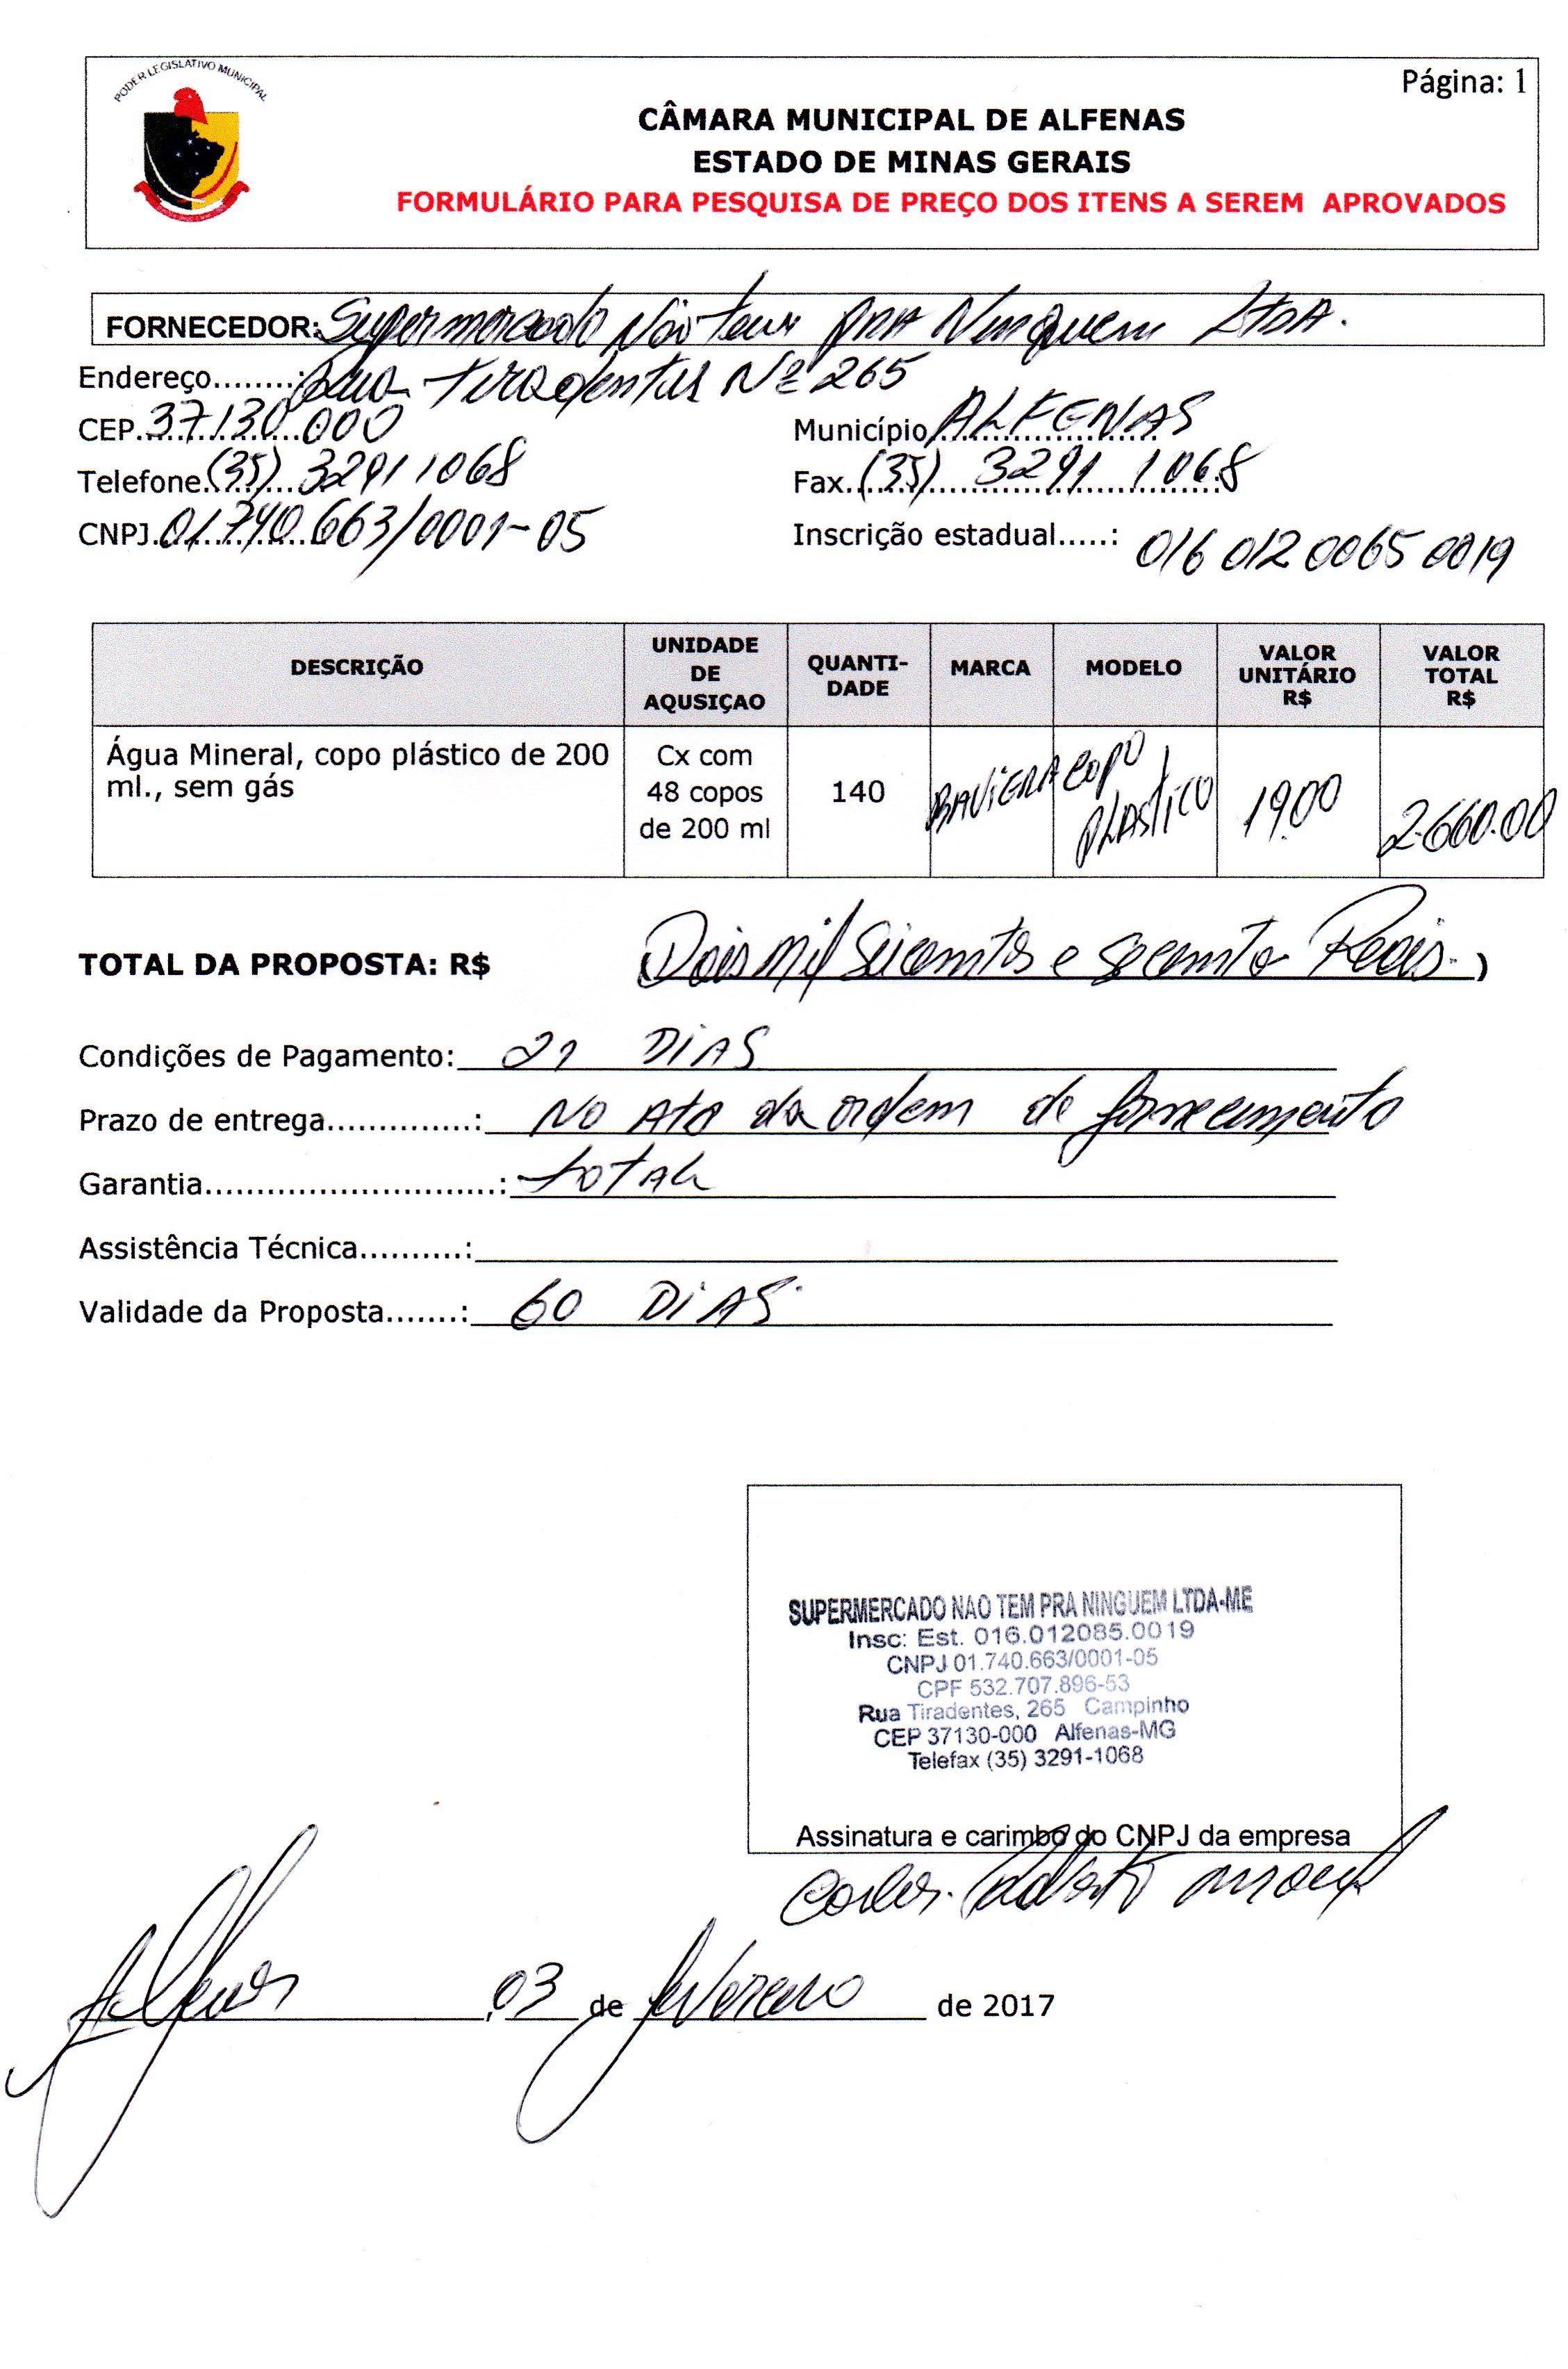 PODER LEGISLATIVO MUNICIPAL
Página: 1
CÂMARA MUNICIPAL DE ALFENAS
ESTADO DE MINAS GERAIS
FORMULÁRIO PARA PESQUISA DE PREÇO DOS ITENS A SEREM APROVADOS
FORNECEDOR: Supermercado Não tem pra Ninguem LtDA.
Endereço........: Rua tiradentes Nº 265
CEP.................. 37.130.000 Município....................... ALFENAS
Telefone........... (35) 3291 1068 Fax.................................: (35) 3291 1068
CNPJ................. 01.740.663/0001-05 Inscrição estadual.....: 016 012 0065 0019
DESCRIÇÃO UNIDADE DE AQUSIÇAO QUANTI-DADE MARCA MODELO VALOR UNITÁRIO R$ VALOR TOTAL R$
Água Mineral, copo plástico de 200 ml., sem gás Cx com 48 copos de 200 ml 140 BAViERA COPO PLASTICO 19,00 2.660.00
TOTAL DA PROPOSTA: R$ Dois mil Seicentos e Secenta Reais. )
Condições de Pagamento: 21 DiAS
Prazo de entrega..............: No Ato da ordem de fornecimento
Garantia............................: totAL
Assistência Técnica..........:
Validade da Proposta.......: 60 DiAS.
SUPERMERCADO NAO TEM PRA NINGUEM LTDA-ME
Insc: Est. 016.012085.0019
CNPJ 01.740.663/0001-05
CPF 532.707.896-53
Rua Tiradentes, 265 Campinho
CEP 37130-000 Alfenas-MG
Telefax (35) 3291-1068
Assinatura e carimbo do CNPJ da empresa
Carlos Roberto
Alfenas, 03 de fevereiro de 2017